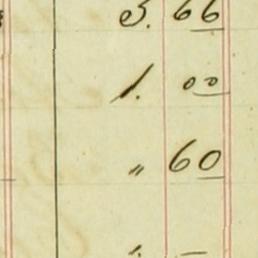 5. 66
1. 00
" 60